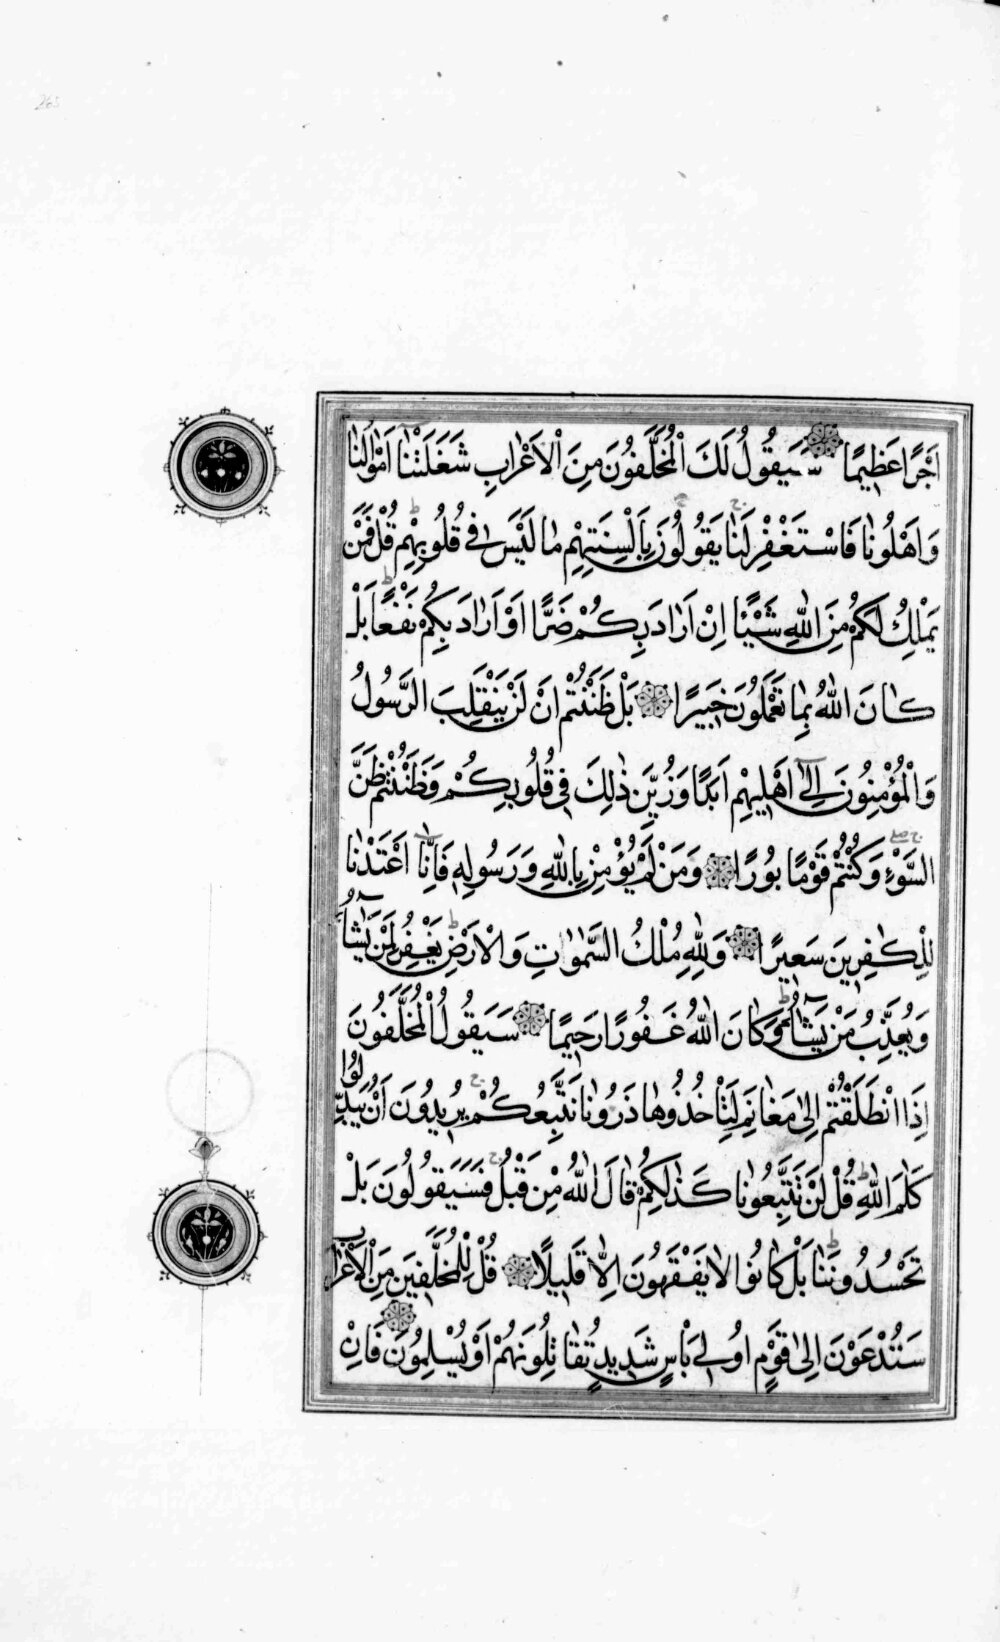 اَجْرًا عَظِيمًا سَيَقُولُ لَكَ الْمُخَلَّفُونَ مِنَ الْاَعْرَابِ شَغَلَتْنَٓا اَمْوَالُنَا
وَاَهْلُونَا فَاسْتَغْفِرْ لَنَا يَقُولُونَ بِاَلْسِنَتِهِمْ مَا لَيْسَ فِى قُلُوبِهِمْ قُلْ فَمَنْ
يَمْلِكُ لَكُمْ مِنَ اللّٰهِ شَيْئًا اِنْ اَرَادَ بِكُمْ ضَرًّا اَوْ اَرَادَ بِكُمْ نَفْعًا بَلْ
كَانَ اللّٰهُ بِمَا تَعْمَلُونَ خَبِيرًا بَلْ ظَنَنْتُمْ اَنْ لَنْ يَنْقَلِبَ الرَّسُولُ
وَالْمُؤْمِنُونَ اِلٰٓى اَهْلِيهِمْ اَبَدًا وَزُيِّنَ ذٰلِكَ فِى قُلُوبِكُمْ وَظَنَنْتُمْ ظَنَّ
السَّوْءِ وَكُنْتُمْ قَوْمًا بُورًا وَمَنْ لَمْ يُؤْمِنْ بِاللّٰهِ وَرَسُولِهِ فَاِنَّٓا اَعْتَدْنَا
لِلْكَافِرِينَ سَعِيرًا وَلِلّٰهِ مُلْكُ السَّمٰوَاتِ وَالْاَرْضِ يَغْفِرُ لِمَنْ يَشَٓاءُ
وَيُعَذِّبُ مَنْ يَشَٓاءُ وَكَانَ اللّٰهُ غَفُورًا رَحِيمًا سَيَقُولُ الْمُخَلَّفُونَ
اِذَا انْطَلَقْتُمْ اِلٰى مَغَانِمَ لِتَاْخُذُوهَا ذَرُونَا نَتَّبِعْكُمْ يُرِيدُونَ اَنْ يُبَدِّلُوا
كَلَامَ اللّٰهِ قُلْ لَنْ تَتَّبِعُونَا كَذٰلِكُمْ قَالَ اللّٰهُ مِنْ قَبْلُ فَسَيَقُولُونَ بَلْ
تَحْسُدُونَنَا بَلْ كَانُوا لَا يَفْقَهُونَ اِلَّا قَلِيلًا قُلْ لِلْمُخَلَّفِينَ مِنَ الْاَعْرَابِ
سَتُدْعَوْنَ اِلٰى قَوْمٍ اُولِى بَاْسٍ شَدِيدٍ تُقَاتِلُونَهُمْ اَوْ يُسْلِمُونَ فَاِنْ